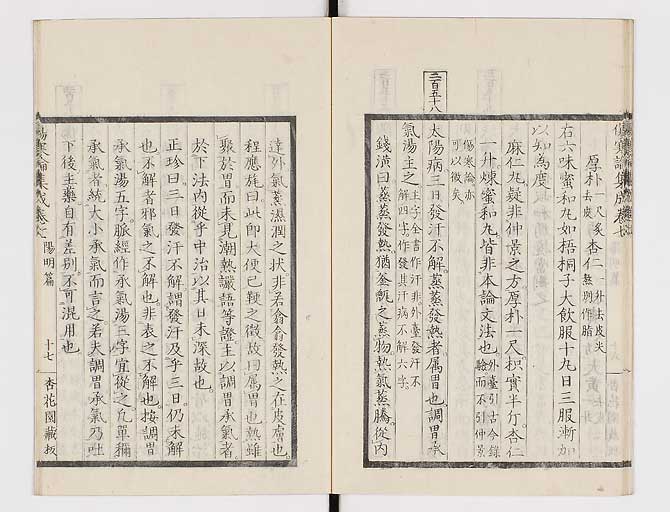 傷寒論集成卷七
厚朴一尺炙去皮 杏仁一升去皮尖熬別作脂
右六味蜜和丸如梧桐子大飲服十九日三服漸加
以知爲度
麻仁丸疑非仲景之方厚朴一尺枳實半斤杏仁
一升煉蜜和丸皆非本論文法也外臺引古今錄驗而不引仲景
傷寒論亦可以徵矣
二百五十八
太陽病三日發汗不解蒸蒸發熱者屬胃也調胃承
氣湯主之主字全書作發汗不解四字
錢潢曰蒸蒸發熱猶釜甑之蒸物熱氣蒸騰從內
達外氣蒸濕潤之狀非若翕翕發熱之在皮膚也
程應旄曰此即大便已鞕之徵故曰屬胃也熱雖
聚於胃而未見潮熱讝語等證主以調胃承氣者
於下法內從乎中治以其日未深故也
正珍曰三日發汗不解謂發汗及乎三日仍未解
也不解者邪氣之不解也非表之不解也按調胃
承氣湯五字脈經作承氣湯三字宜從之凡單稱
承氣者統大小承氣而言之若夫調胃承氣乃吐
下後主藥自有差別不可混用也
傷寒論集成卷七 陽明篇 十七 杏花園藏板